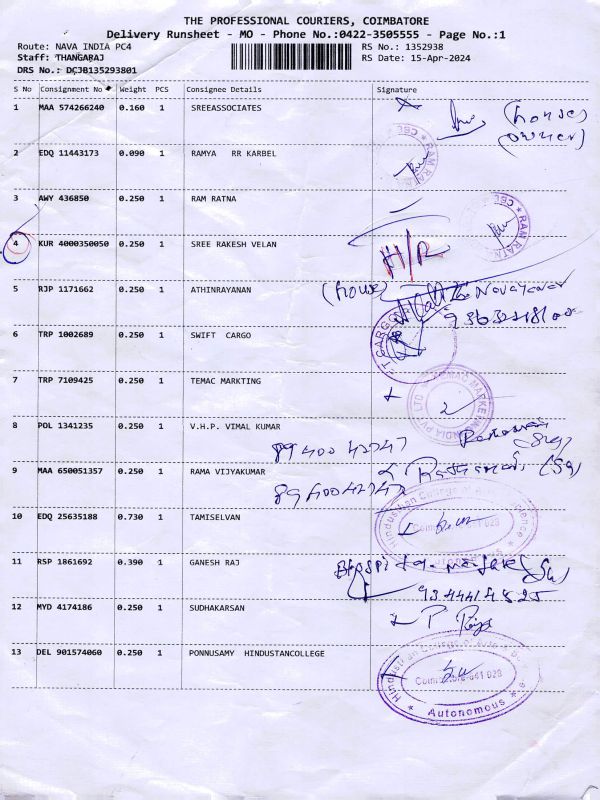 THE PROFESSIONAL COURIERS, COIMBATORE
Delivery Runsheet - MO - Phone No.:0422-3505555 - Page No.:1
Route: NAVA INDIA PC4
RS No.: 1352938
Staff: THANGARAJ
RS Date: 15-Apr-2024
DRS No.: DCJB135293801
S No Consignment No Weight PCS Consignee Details Signature
1 MAA 574266240 0.160 1 SREEASSOCIATES
(house
owner)
2 EDQ 11443173 0.090 1 RAMYA RR KARBEL
RAM RATNA
3 AWY 436850 0.250 1 RAM RATNA
RAM RATNA
4 KUR 4000350050 0.250 1 SREE RAKESH VELAN
H/R
5 RJP 1171662 0.250 1 ATHINRAYANAN (house)
6 TRP 1002689 0.250 1 SWIFT CARGO
T CARGO
7 TRP 7109425 0.250 1 TEMAC MARKTING
INDIA PVT LTD
8 POL 1341235 0.250 1 V.H.P. VIMAL KUMAR
89400 42747
9 MAA 650051357 0.250 1 RAMA VIJYAKUMAR
8940042747
10 EDQ 25635188 0.730 1 TAMISELVAN
Hindusthan College of
11 RSP 1861692 0.390 1 GANESH RAJ
9344414825
12 MYD 4174186 0.250 1 SUDHAKARSAN
13 DEL 901574060 0.250 1 PONNUSAMY HINDUSTANCOLLEGE
Coimbatore-641 028
Autonomous